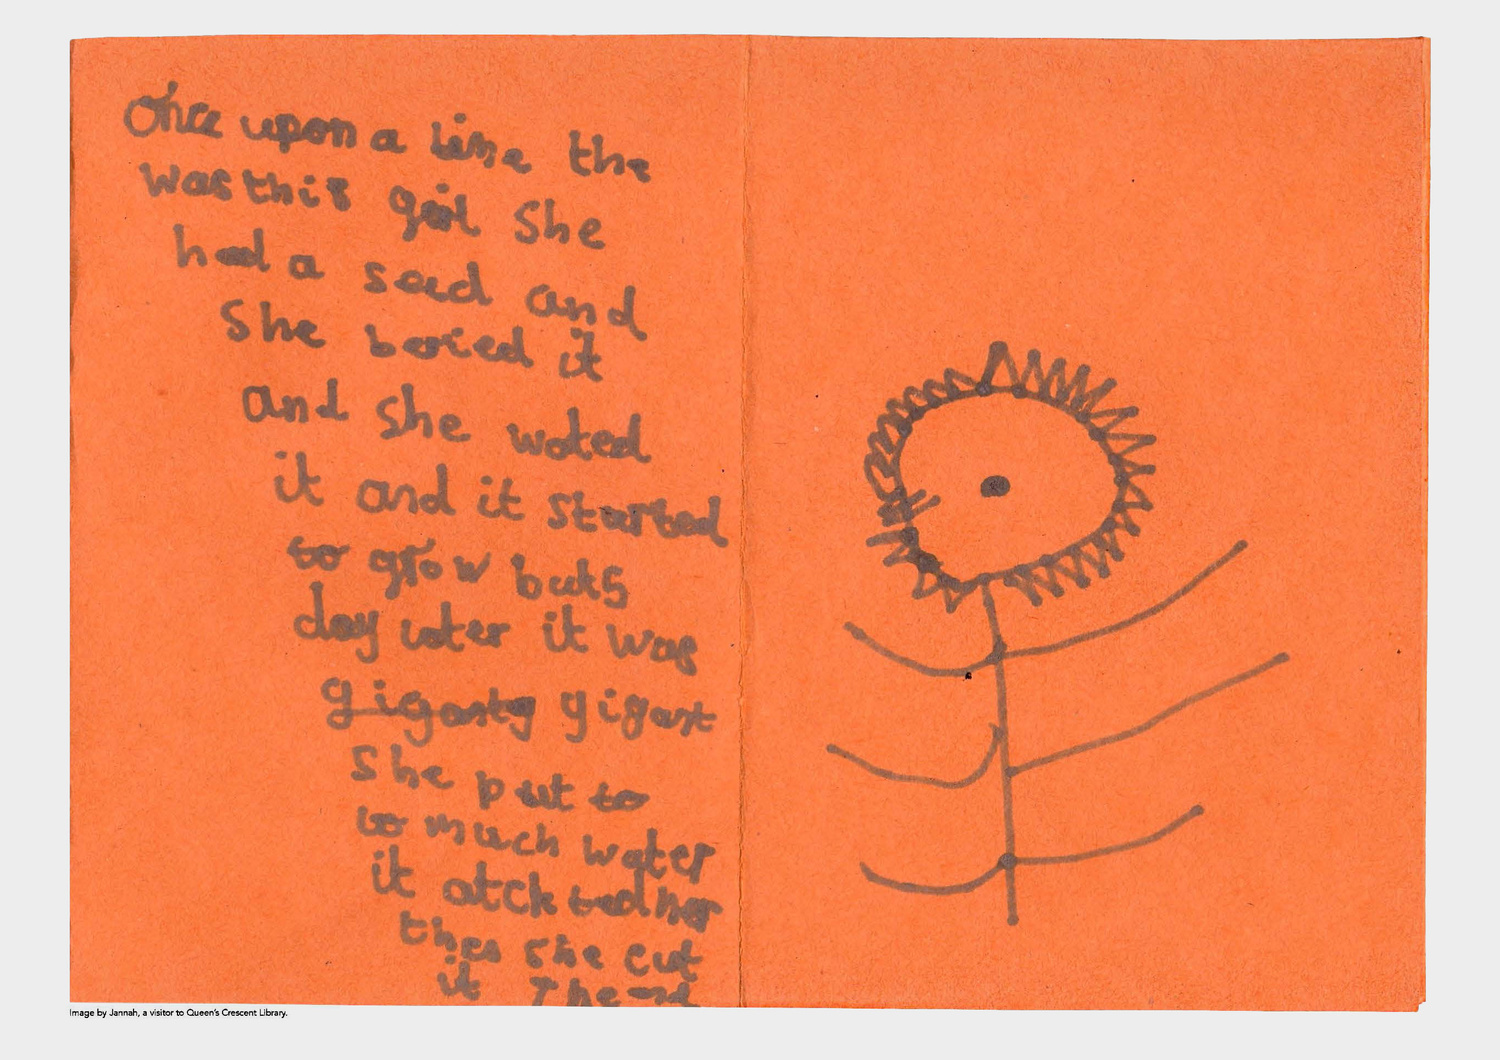 Once upon a time the
was this girl She
had a seed and
She beried it
and she woted
it and it started
to grow buts
day later it was
gigant
She put to
to much water
it atck ted her
then she cut
it The end
Image by Jannah, a visitor to Queen's Crescent Library.